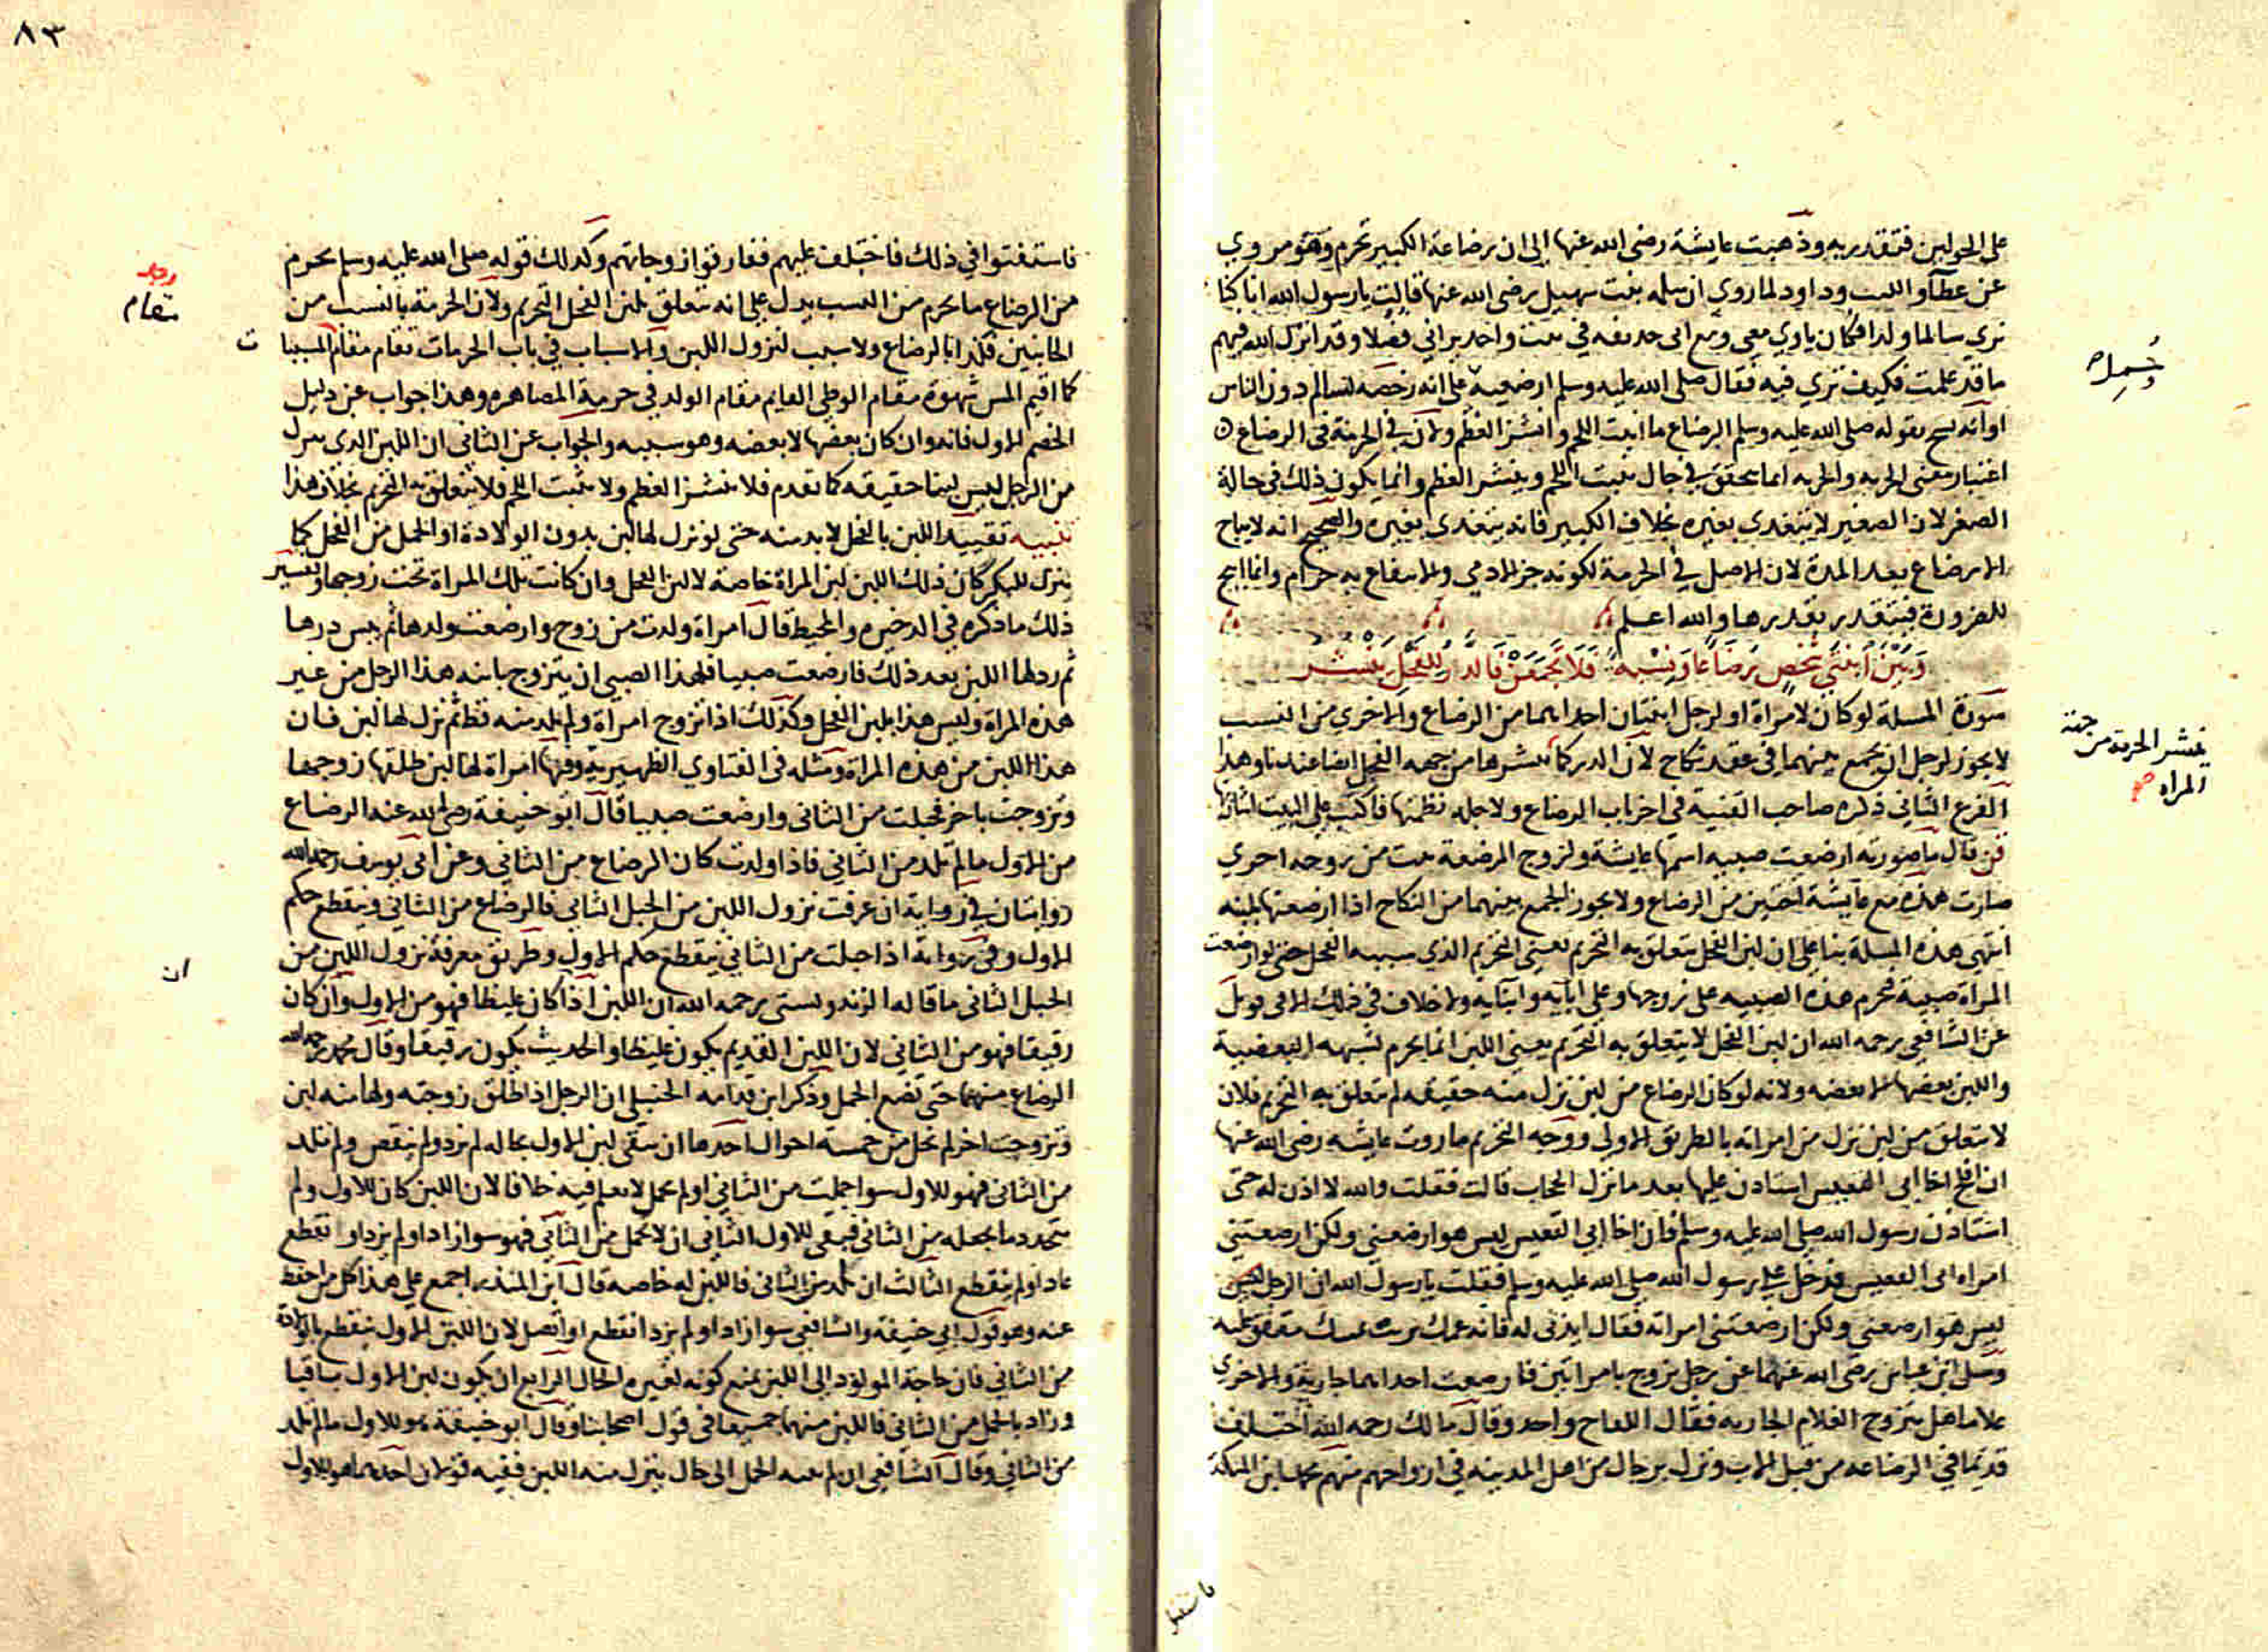 على الحولين فتتقدر به وذهبت عايشة رضى الله عنها الى ان رضاعة الكبير تحرم وهو مروي
عن عطآ والليث وداود لما روي ان سهله بنت سهيل رضى الله عنها قالت يارسول الله انا كنا
نري سالما ولدا فكان ياوي معى ومع ابى حذيفه في بيت واحد يراني فضلا وقد انزل الله فيهم
ما قد علمت فكيف تري فيه فقال صلى الله عليه وسلم ارضعيه على انه رخصه لسالم دون الناس
او انه نسخ بقوله صلى الله عليه وسلم الرضاع ما انبت اللحم وانشز العظم ولان في الحرمة فى الرضاع
اعتبار معنى الجزيه والجزيه انما يتحقق في حال ينبت اللحم وينشز العظم وانما يكون ذلك فى حالة
الصغر لان الصغير لا يتغدي بغيره بخلاف الكبير فانه يتغدي بغيره والصحيح انه لا يباح
الارضاع بعد المدة لان الاصل في الحرمة لكونه جز الادمي والانتفاع به حرام وانما ابيح
للضرورة فيتقدر بقدرها والله اعلم
وَبَيْنَ ابنتَي شخصٍ رَضَاعًا وَنِسْبَةً فَلَا تَجْمَعَنْ فَالدَّرُّ لِلفَحْلِ يَنْشُرُ
صورة المسلة لو كان لامراة او لرجل ابنتان احداهما من الرضاع والاخري من النسب
لا يجوز لرجل ان يجمع بينهما في عقد نكاح لان الدر كما ينشرها من جهه الفحل ايضا عندنا وهذا
الفرع الثاني ذكره صاحب القنية في اخر باب الرضاع ولاجله نظمتها فاكتب على البيت لثانها
فن قال ما صورته ارضعت صبيه اسمها عايشة ولزوج المرضعة بنت من زوجه اخري
صارت هذه مع عايشة اختين من الرضاع ولا يجوز الجمع بينهما من النكاح اذا ارضعتها بلبنه
انتهى هذه المسلة بنا على ان لبن الفحل يتعلق به التحريم يعني التحريم الذي سببه الفحل حتى لو ارضعت
المراة صبية تحرم هذه الصبيه على زوجها وعلى ابايه وابنايه ولا خلاف في ذلك الا في قول
عن الشافعى رحمه الله ان لبن الفحل لا يتعلق به التحريم يعني اللبن انما يحرم لشبهه البعضية
واللبن بعضها لا بعضه ولانه لو كان الرضاع من لبن نزل منه حقيقه لم يتعلق به التحريم فلان
لا يتعلق من لبن نزل من امراته بالطريق الاولى ووجه التحريم ما روت عايشه رضى الله عنها
ان افلح اخا ابى القعيس استاذن عليها بعد ما نزل الحجاب قالت فقلت والله لا اذن له حتى
استاذن رسول الله صلى الله عليه وسلم فان اخا ابي القعيس ليس هو ارضعني ولكن ارضعتني
امراه ابى القعيس فدخل على رسول الله صلى الله عليه وسلم فقلت يارسول الله ان الرجل
ليس هو ارضعني ولكن ارضعتنى امراته فقال ايذنى له فانه عمك تربت يمينك متفق عليه
وسئل ابن عباس رضى الله عنهما عن رجل تزوج بامراتين فارضعت احداهما جارية والاخري
غلاما هل يتزوج الغلام الجاريه فقال اللقاح واحد وقال مالك رحمه الله اختلف
قديما في الرضاعه من قبل الاب ونزل برجال من اهل المدينه في ازواجهم منهم محمد ابن المنكدر
جميله
ينشر الحرمة من جهة
المراه صح
فاستفتوا
٨٣
فاستفتوا في ذلك فاختلف عليهم ففارقوا زوجاتهم وكذلك قوله صلى الله عليه وسلم يحرم
من الرضاع ما يحرم من النسب يدل على انه يتعلق بلبن الفحل التحريم ولان الحرمة بالنسب من
الجانبين فكذا بالرضاع ولا سبب لنزول اللبن والاسباب في باب الحرمات تقام مقام المسببات
كما اقيم المس شهوة مقام الوطى القايم مقام الولد في حرمة المصاهره وهذا جواب عن دليل
الخصم الاول فانه وان كان بعضها لا بعضه وهو سببه والجواب عن الثانى ان اللبن الذي ينزل
من الرجل ليس لبنا حقيقه كما تقدم فلا ينشز العظم ولا ينبت اللحم فلا يتعلق به التحريم بخلاف هذا
تنبيه تقييد اللبن بالفحل لا بد منه حتى لو نزل لها لبن بدون الولادة او الحمل من الفحل كما
ينزل للبكر كان ذلك اللبن لبن المراة خاصة لا لبن الفحل وان كانت تلك المراة تحت زوجها وتفسير
ذلك ما ذكره في الدخيره والمحيط قال امراة ولدت من زوج وارضعت ولدها ثم يبس درها
ثم ردلها اللبن بعد ذلك فارضعت صبيا فلهذا الصبي ان يتزوج بابنه هذا الرجل من غير
هذه المراة وليس هذا بلبن الفحل وكذلك اذا تزوج امراة ولم تلد منه قط ثم نزل لها لبن فان
هذا اللبن من هذه المراة ومثله فى الفتاوي الظهيرية وفيها امراة لها لبن طلقها زوجها
وتزوجت باخر فحبلت من الثانى وارضعت صبيا قال ابو حنيفة رضى الله عنه الرضاع
من الاول ما لم تلد من الثاني فاذا ولدت كان الرضاع من الثاني وعن ابى يوسف رحمه الله
روايتان في رواية ان عرفت نزول اللبن من الحبل الثاني فالرضاع من الثاني وينقطع حكم
الاول وفى رواية اذا حبلت من الثاني ينقطع حكم الاول وطريق معرفة نزول اللبن من
الحبل الثانى ما قاله الزندويستى رحمه الله ان اللبن اذا كان غليظا فهو من الاول وان كان
رقيقا فهو من الثاني لان اللبن القديم يكون غليظا والحديث يكون رقيقا وقال محمد رحمه الله
الرضاع منهما حتى تضع الحمل وذكر ابن قدامه الحنبلى ان الرجل اذا طلق زوجته ولها منه لبن
وتزوجت اخر لم تخل من خمسة احوال احدها ان يبقى لبن الاول بحاله لم يزد ولم ينقص ولم تلد
من الثانى فهو للاول سوا حملت من الثاني او لم تحمل لا نعلم فيه خلافا لان اللبن كان للاول ولم
يتجدد ما يجعله من الثانى فبقى للاول الثاني ان لا تحمل من الثاني فهو سوا زاد او لم يزد او انقطع
عاد او لم ينقطع الثالث ان تلد من الثانى فاللبن له خاصه قال ابن المنذر اجمع على هذا كل من احفظ
عنه وهو قول ابي حنيفة والشافعي سوا زاد او لم يزد انقطع او اتصل لان اللبن الاول ينقطع بالولادة
من الثاني فان حاجة المولود الى اللبن يمنع كونه لغيره الحال الرابع ان يكون لبن الاول باقيا
وزاد بالحمل من الثاني فاللبن منهما جميعا في قول اصحابنا وقال ابو حنيفة هو للاول ما لم تلد
من الثاني وقال الشافعى ان لم ينته الحمل الى حال ينزل منه اللبن ففيه قولان احدهما هو للاول
تقام
ت
ان